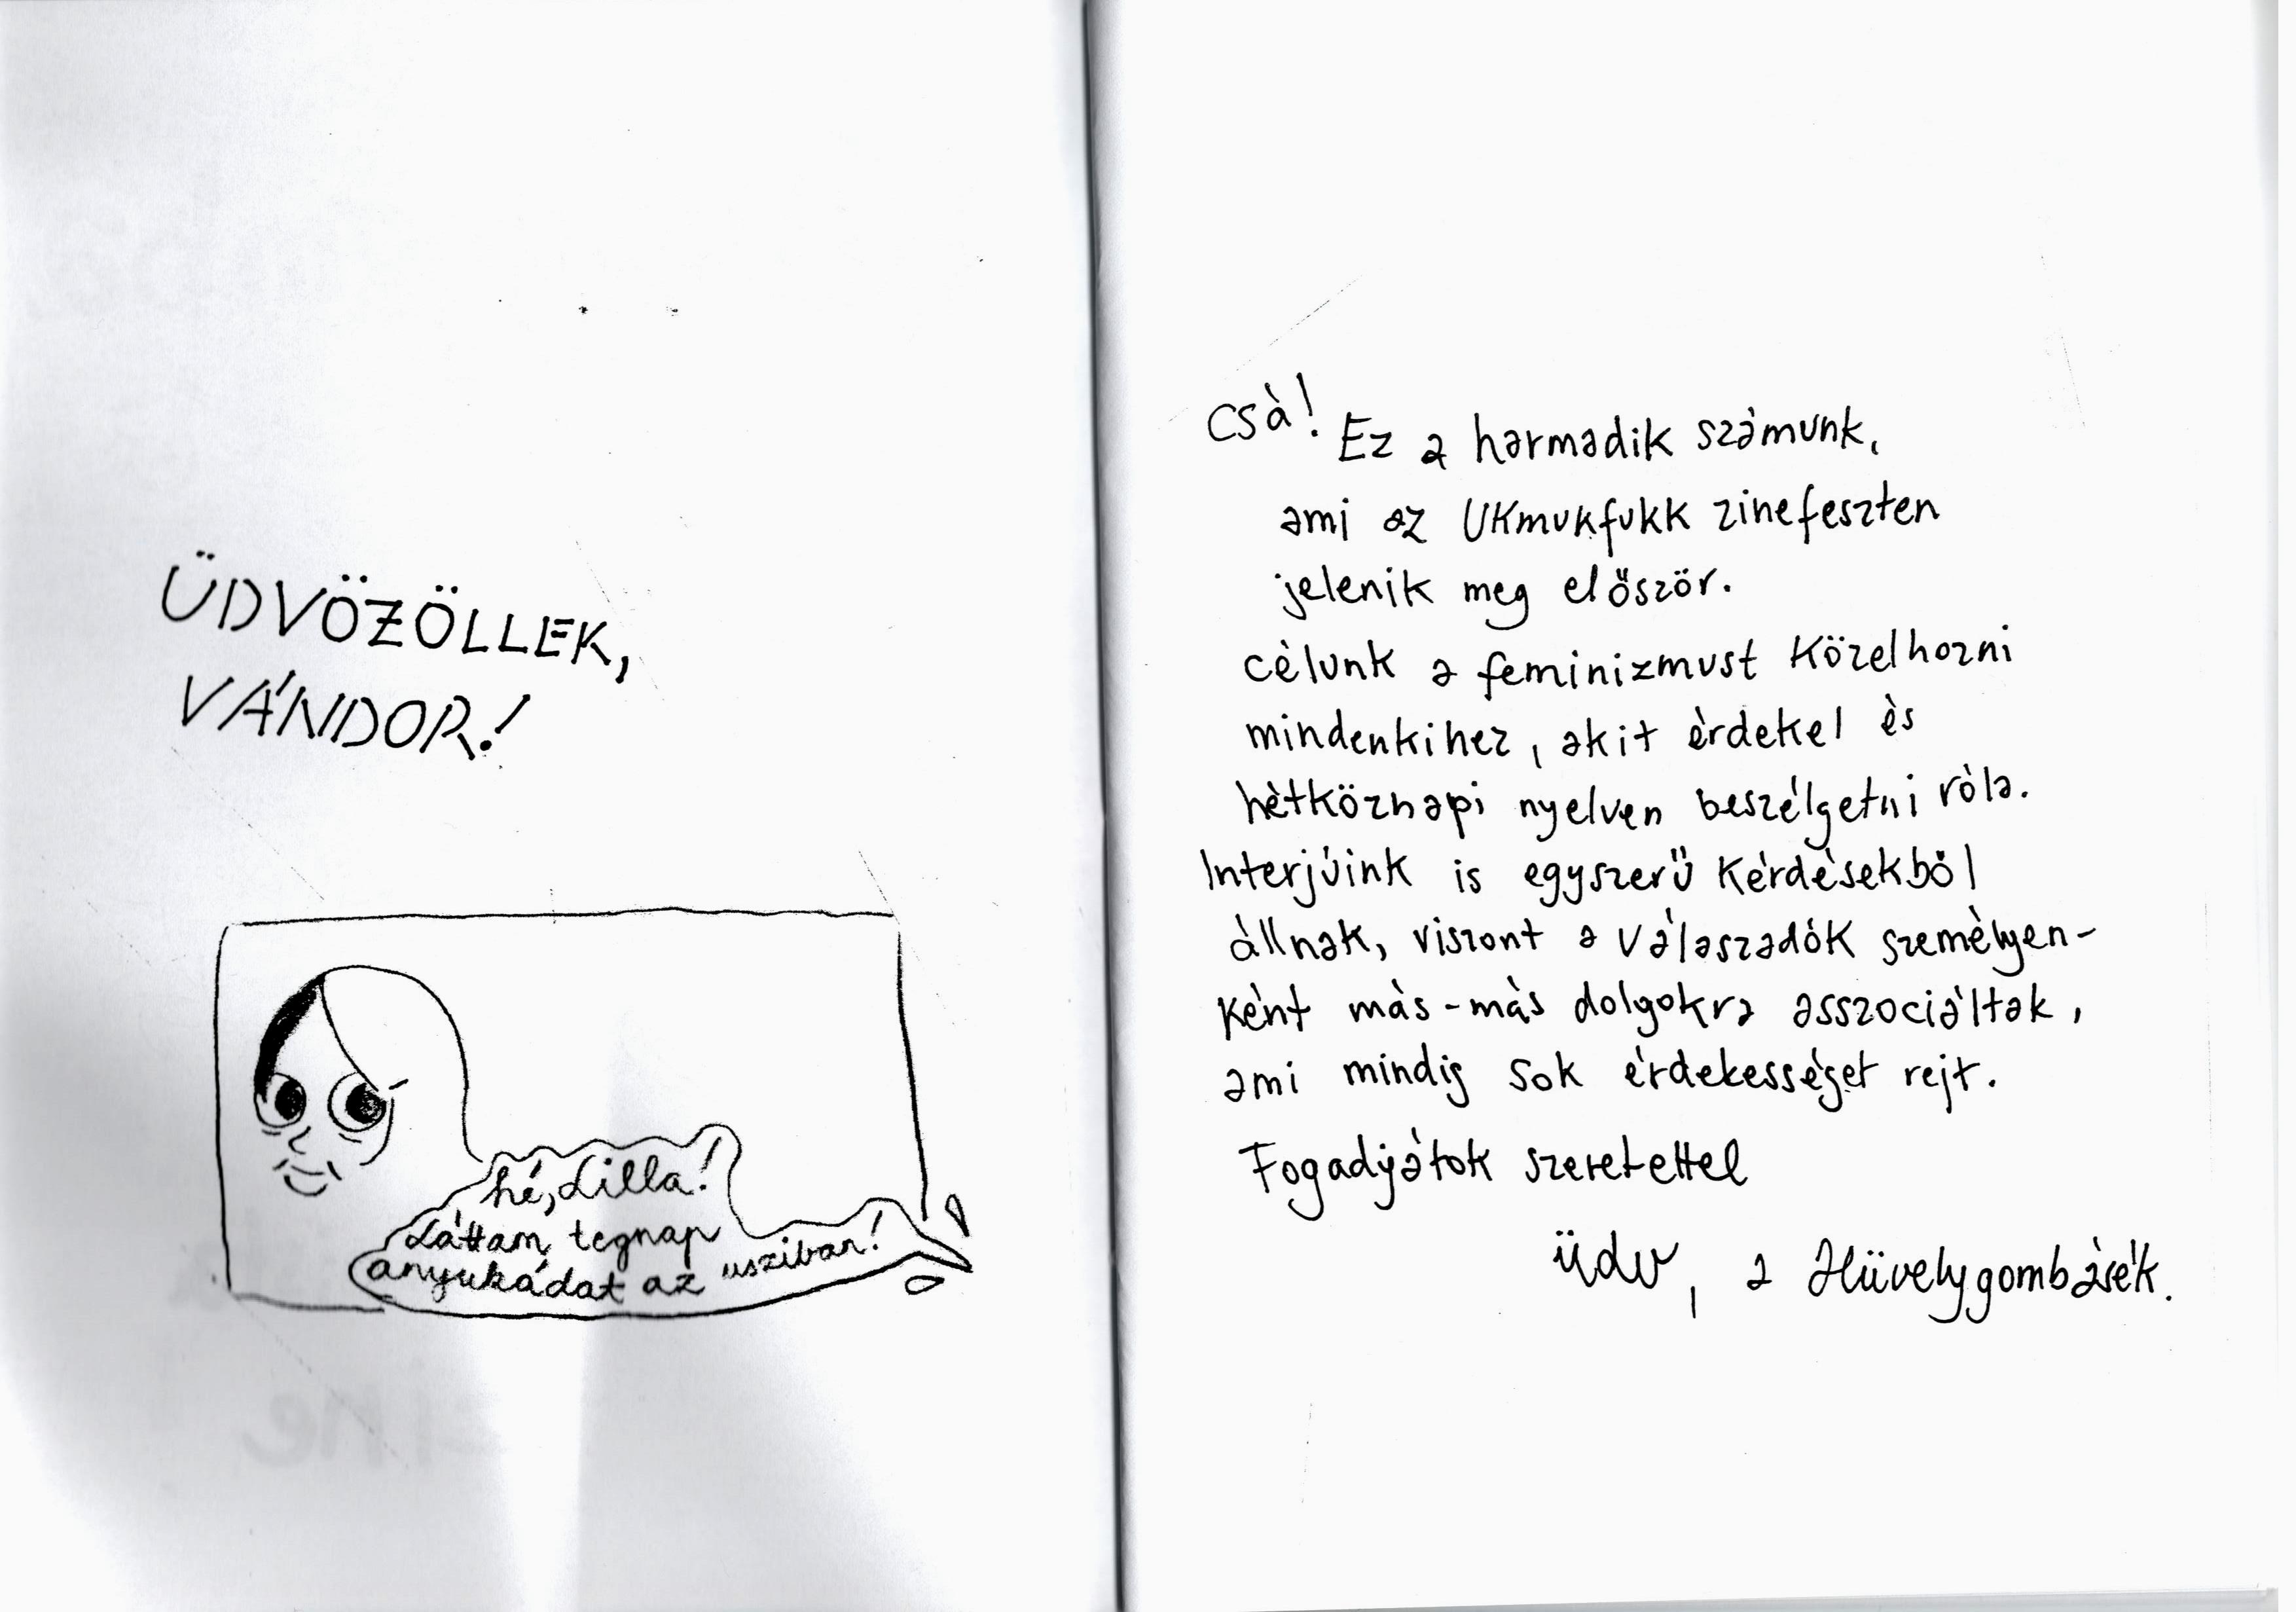 ÜDVÖZÖLLEK,
VÁNDOR!
hé, Lilla!
Láttam tegnap
anyukádat az usziban!
Csà! Ez a harmadik számunk,
ami az UKmukfukk zinefeszten
jelenik meg először.
célunk a feminizmust közelhozni
mindenkihez, akit érdekel és
hétköznapi nyelven beszélgetni róla.
Interjúink is egyszerű kérdésekből
állnak, viszont a válaszadók személyen-
ként más-más dolgokra asszociáltak,
ami mindig sok érdekességet rejt.
Fogadjátok szeretettel
üdv, a Hüvelygombásék.